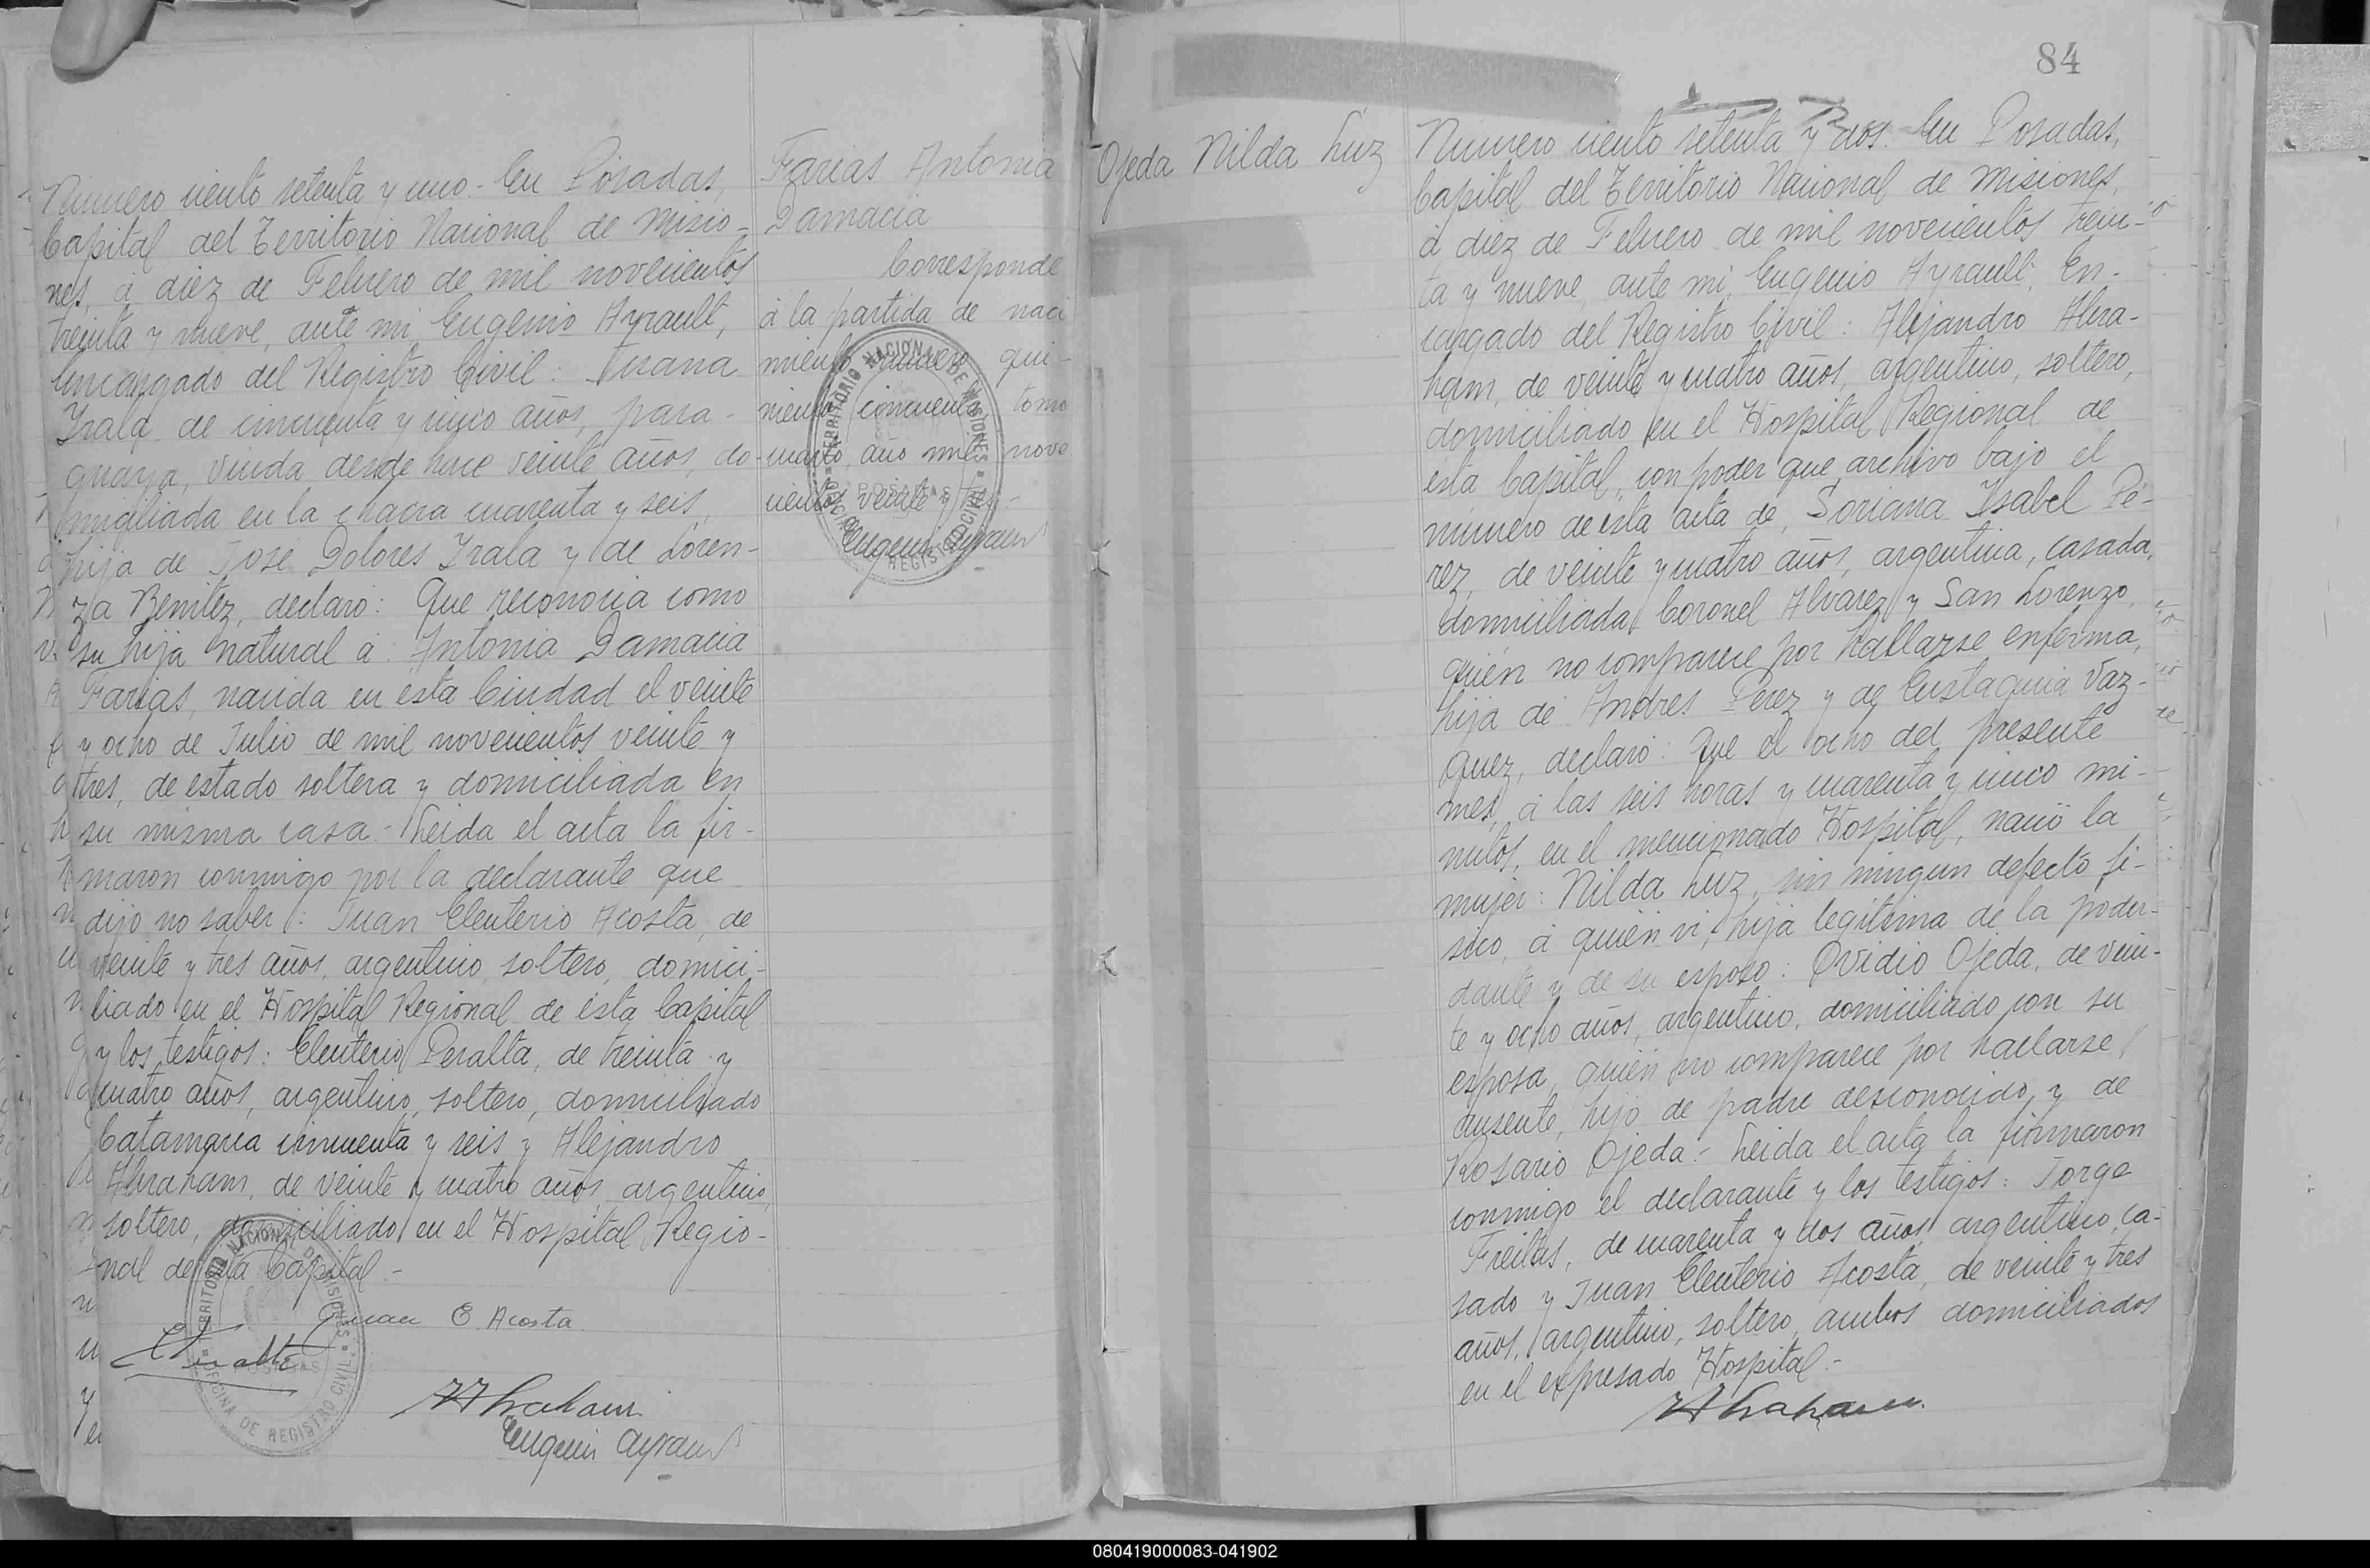 Numero ciento setenta y uno.- En Posadas,
Capital del Territorio Nacional de Misio-
nes, á diez de Febrero de mil novecientos
treinta y nueve, ante mi, Eugenio Ayrault,
Encargado del Registro Civil:
Irala, de cincuenta y cinco años, para-
guaya, viuda desde hace veinte años, do-
miciliada en la chacra cuarenta y seis,
hija de José Dolores Irala y de Loren-
za Benitez, declaró: Que reconocia como
su hija natural á: Antonia Damacia
Farias, nacida en esta Ciudad el veinte
y ocho de Julio de mil novecientos veinte y
tres, de estado soltera y domiciliada en
su misma casa.- Leida el acta la fir-
maron conmigo por la declarante que
dijo no saber: Juan Eleuterio Acosta, de
veinte y tres años, argentino, soltero, domici-
liado en el Hospital Regional de ésta Capital
y los testigos: Eleuterio Peralta, de treinta y
cuatro años, argentino, soltero, domiciliado
Catamarca cincuenta y seis y Alejandro
Abraham, de veinte y cuatro años, argentino,
soltero, domiciliado en el Hospital Regio-
nal de ésta Capital.-
Juan E. Acosta
Peralta
AAbraham
Eugenio Ayrault
TERRITORIO NACIONAL DE MISIONES
POSADAS
OFICINA DE REGISTRO CIVIL
Farias Antonia
Damacia
Corresponde
á la partida de naci
miento numero qui-
niento cincuenta tomo
cuarto, año mil nove
cientos veinte y
Eugenio Ayrault
TERRITORIO NACIONAL DE MISIONES
POSADAS
OFICINA DE REGISTRO CIVIL
84
Ojeda Nilda Luz
Numero ciento setenta y dos.- En Posadas,
Capital del Territorio Nacional de Misiones,
á diez de Febrero de mil novecientos trein-
ta y nueve, ante mi, Eugenio Ayrault, En-
cargado del Registro Civil: Alejandro Abra-
ham, de veinte y cuatro años, argentino, soltero,
domiciliado en el Hospital Regional de
esta Capital, con poder que archivo bajo el
número de esta acta de, Soriana Ysabel Pé-
rez, de veinte y cuatro años, argentina, casada,
domiciliada Coronel Alvarez y San Lorenzo,
quién no comparece por hallarse enferma,
hija de Andres Perez y de Eustaquia Vaz-
quez, declaró: Que el ocho del presente
mes, á las seis horas y cuarenta y cinco mi-
nutos, en el mencionado Hospital, nació la
mujer: Nilda Luz, sin ningun defecto fi-
sico, á quién vi, hija legitima de la poder-
dante y de su esposo: Ovidio Ojeda, de vein-
te y ocho años, argentino, domiciliado con su
esposa, quién no comparece por hallarse
ausente, hijo de padre desconocido y de
Rosario Ojeda.- Leida el acta la firmaron
conmigo el declarante y los testigos: Jorge
Freitas, de cuarenta y dos años, argentino, ca-
sado y Juan Eleuterio Acosta, de veinte y tres
años, argentino, soltero, ambos domiciliados
en el expresado Hospital.-
AAbraham
080419000083-041902